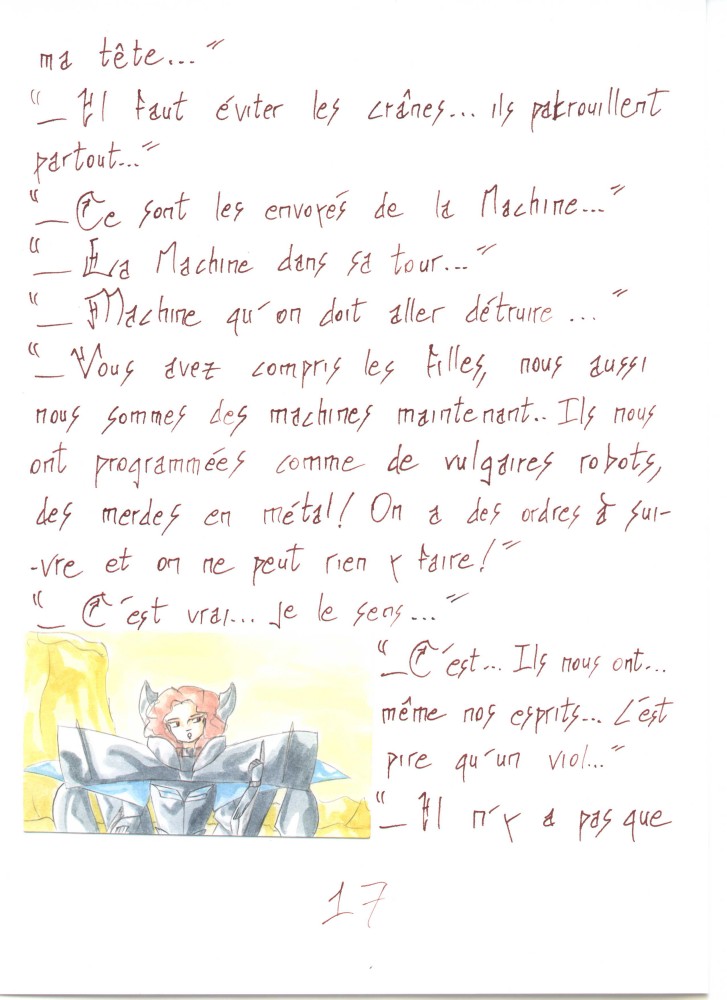 ma tête..."
"_ Il faut éviter les crânes... ils patrouillent
partout..."
"_ Ce sont les envoyés de la Machine..."
"_ La Machine dans sa tour..."
"_ Machine qu'on doit aller détruire ..."
"_ Vous avez compris les filles, nous aussi
nous sommes des machines maintenant.. Ils nous
ont programmées comme de vulgaires robots,
des merdes en métal! On a des ordres à sui-
-vre et on ne peut rien y faire!"
"_ C'est vrai... je le sens..."
"_ C'est... Ils nous ont...
même nos esprits... C'est
pire qu'un viol..."
"_ Il n'y a pas que
17